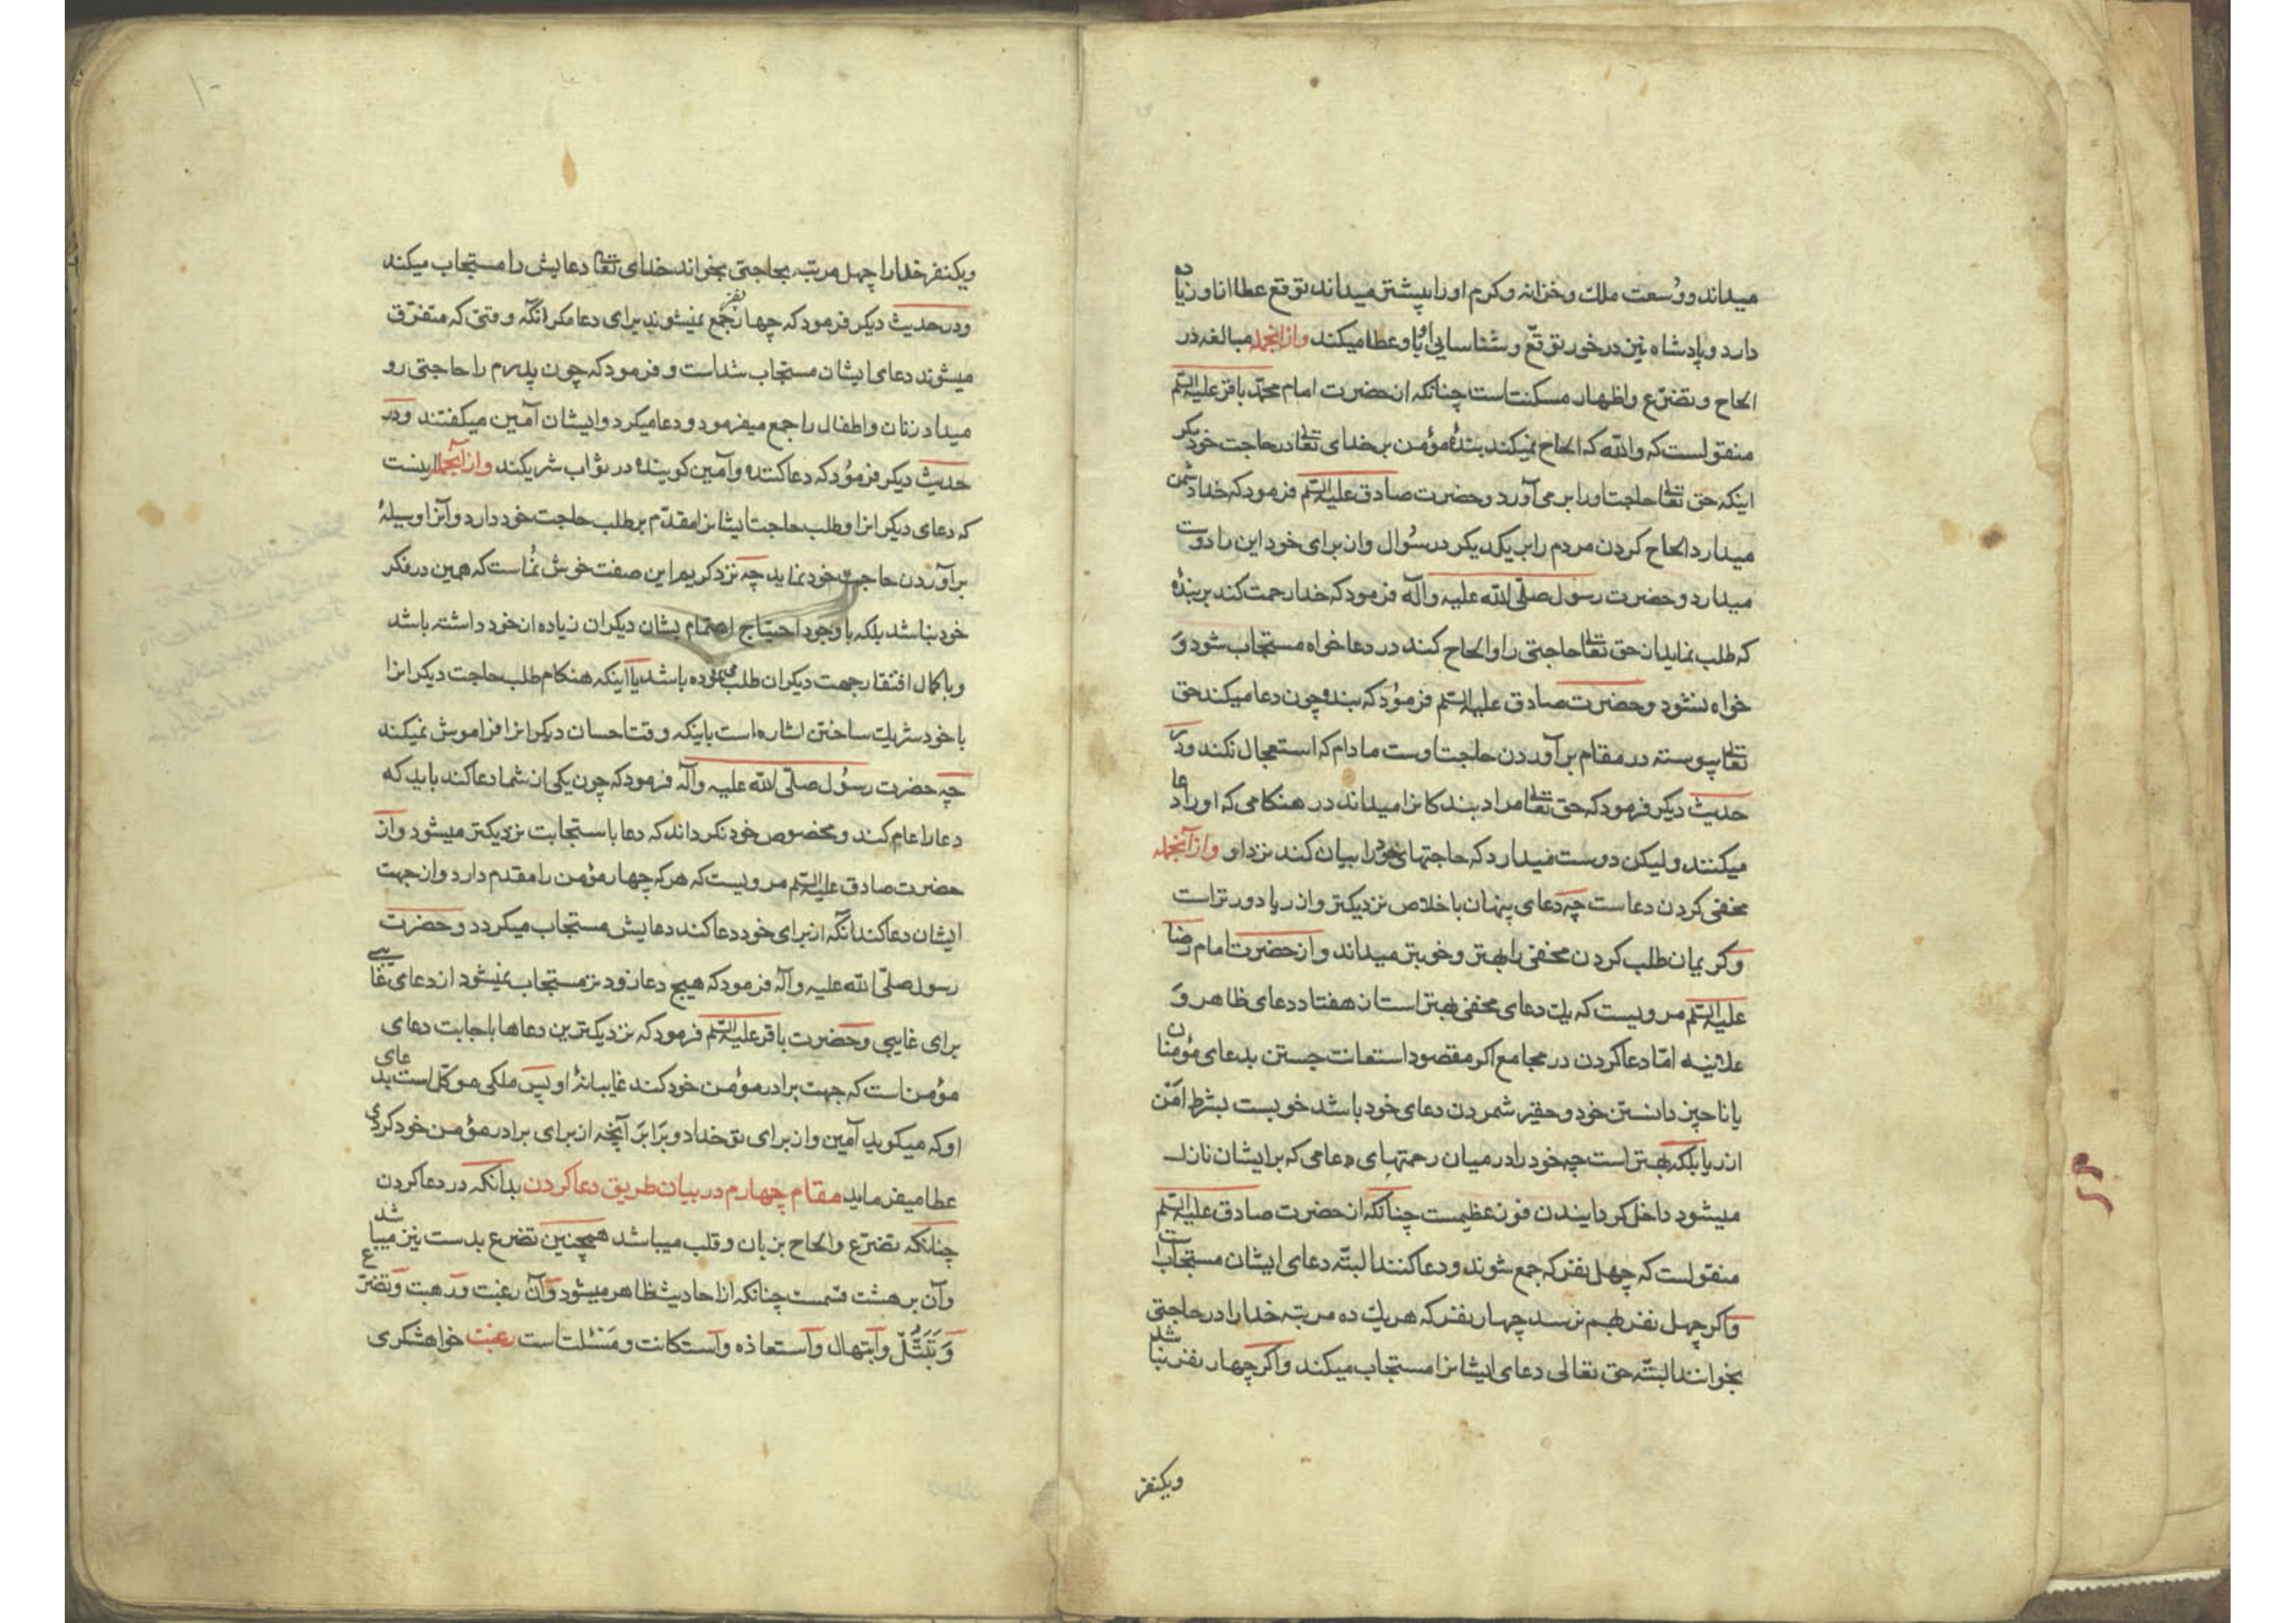 میداند و وسعت ملک و خزانه و کرم او را بیشتر میداند توقع عطا از او زیاده
دارد و پادشاه نیز درخور توقع و شناسایی او باو عطا میکند و از آنجمله مبالغه در
الحاح و تضرع و اظهار مسکنتست چنانکه از حضرت امام محمد باقر علیه السلم
منقولست که والله که الحاح نمیکند بندهٔ مؤمن بر خدای تعالی در حاجت خود مکر
اینکه حق تعالی حاجت او را بر می آورد و حضرت صادق علیه السلم فرمود که خدا دشمن
میدارد الحاح کردن مردم را بر یکدیکر در سُوال و از برای خود این را دوست
میدارد و حضرت رسول صلّی الله علیه و آله فرمود که خدا رحمت کند بر بندهٔ
که طلب نماید از حق تعالی حاجتی را و الحاح کند در دعا خواه مستجاب شود وَ
خواه نشود و حضرت صادق علیه السلم فرمُود که بنده چون دعا میکند حق
تعالی پیوسته در مقام برآوردن حاجت اوست مادام که استعجال نکند و در
حدیث دیکر فرمود که حق تعالی مراد بندکانرا میداند در هنکامی که او را دعا
میکنند و لیکن دوست میدارد که حاجتهای خود را بیان کند نزد او و از آنجمله
مخفی کردن دعاست چه دعای پنهان باخلاص نزدیکتر و از ریا دورتر است
و کریمان طلب کردن مخفی را بهتر و خوبتر میداند و از حضرت امام رضا
علیه السلم مرویست که یک دعای مخفی بهتر است از هفتاد دعای ظاهر وَ
علانیه امّا دعا کردن در مجامع اکر مقصود استعانت جستن بدعای مؤمنان
یا ناچیز دانستن خود و حقیر شمردن دعای خود باشد خوبست بشرط امَن
از ریا بلکه بهتر است چه خود را در میان رحمتهای دعامی که بر ایشان نازل
میشود داخل کردایندن فوز عظیمست چنانکه از حضرت صادق علیه السلم
منقولست که چهل نفر که جمع شوند و دعا کنند البتّه دعای ایشان مستجابست
و اکر چهل نفر بهم نرسد چهار نفر که هر یک ده مرتبه خدا را در حاجتی
بخوانند البتّه حق تعالی دعای ایشانرا مستجاب میکند و اکر چهار نفر نباشد
ویکنفر
ویکنفر خدا را چهل مرتبه بحاجتی بخواند خدای تعالی دعایش را مستجاب میکند
و در حدیث دیکر فرمود که چهار نفر جمع نمیشوند برای دعا مکر انکه وقتی که متفرّق
میشوند دعای ایشان مستجاب شداست و فرمود که چون پدرم را حاجتی رو
میداد زنان و اطفال را جمع میفرمود و دعا میکرد و ایشان آمین میکفتند و در
حدیث دیکر فرمُود که دعا کننده و آمین کوینده در ثواب شریکند و از آنجمله اینست
که دعای دیکرانرا و طلب حاجت ایشانرا مقدّم بر طلب حاجت خود دارد و آنرا وسیلهٔ
برآوردن حاجت خود نماید چه نزد کریم این صفت خوش نُماست که همین در فکر
خود نباشد بلکه با وجود احتیاج اهتمام بشان دیکران زیاده از خود داشته باشد
و با کمال افتقار جهت دیکران طلب نموده باشد یا آینکه هنکام طلب حاجت دیکرانرا
با خود شریک ساختن اشاره است باینکه وقت احسان دیکرانرا فراموش نمیکند
چه حضرت رسُول صلّی الله علیه و آله فرمود که چون یکی از شما دعا کند باید که
دعا را عام کند و مخصوص خود نکرداند که دعا باستجابت نزدیکتر میشود و از
حضرت صادق علیه السلم مرویست که هر که چهار مؤمن را مقدم دارد و از جهت
ایشان دعا کند آنکه از برای خود دعا کند دعایش مستجاب میکردد و حضرت
رسول صلّی الله علیه و آله فرمود که هیچ دعا زودتر مستجاب نمیشود از دعای غایبی
برای غایبی و حضرت باقر علیه السلم فرمود که نزدیکترین دعاها باجابت دعای
مؤمن است که جهت برادر مؤمن خود کند غایبانهٔ او پس ملکی موکّل است بدعای
او که میکوید آمین و از برای تو خداد و برَابرَ آنچه از برای برادر مؤمن خود کردی
عطا میفرماید مقام چهارم در بیان طریق دعا کردن بدانکه در دعا کردن
چنانکه تضرّع و الحاح بزبان و قلب میباشد همچنین تضرع بدست نیز میباشد
و آن بر هشت قسمست چنانکه از احادیث ظاهر میشود و آن رغبت و رهبت و تضرّع
وَ تَبَتُّل و ابتهال و آستعاذه و آستکانت و مَسْئلت است رغبت خواهشکری